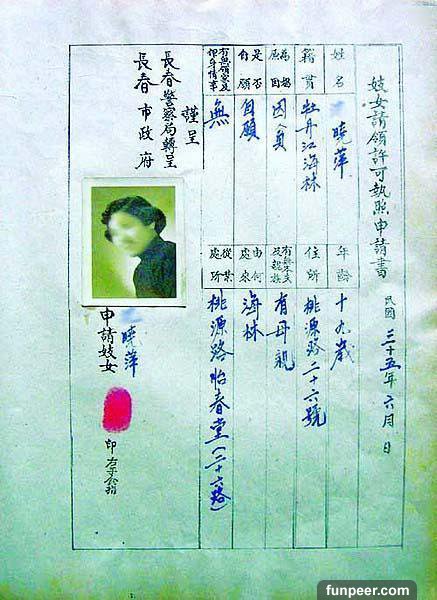 妓女請領許可執照申請書
民國三十五年六月 日
姓名 曉萍 年齡 十九歲
籍貫 牡丹江海林 住所 桃源路二十六號
為娼原因 因貧 有無本夫及親族 有母親
是否自願 自願 由何處來 海林
有無領家及卸身情事 無 從業處所 桃源路怡春堂(二十六路)
謹呈
長春警察局轉呈
長春市政府
申請妓女 曉萍
印
funpeer.com